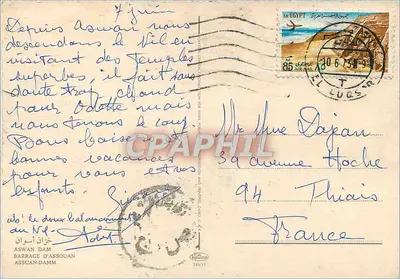 7 juin
Depuis Aswan nous
descendons le Nil en
visitant des temples
superbes, il fait sans
doute trop chaud
pour Odette mais
nous tenons le coup.
Bons baisers et
bonnes vacances
pour vous et vos
enfants.
du Nil
خزان أسوان
ASWAN DAM
BARRAGE D'ASSOUAN
ASSUAN-DAMM
A.R.EGYPT
85
10.6.75
EL LUQSOR
T
CPAPHIL
Mr Mme Dajean
39 avenue Hoche
94 Thiais
France